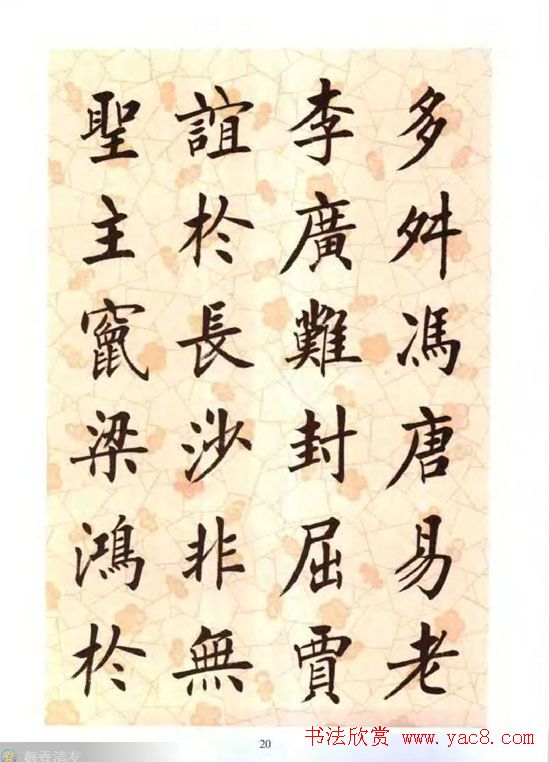 多舛馮唐易老
李廣難封屈賈
誼於長沙非無
聖主竄梁鴻於
20
书法欣赏 www.yac8.com
梅香清友